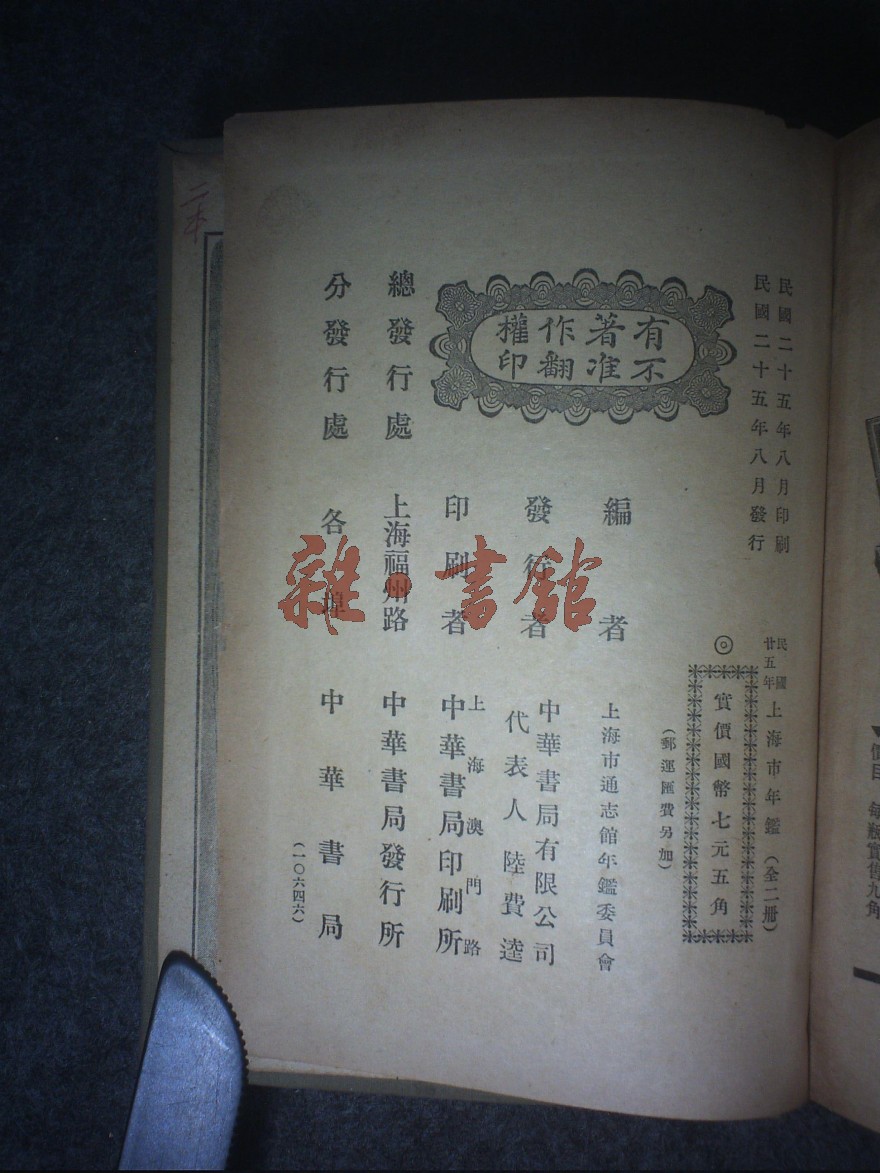 民國二十五年八月印刷
民國二十五年八月發行
民國廿五年上海市年鑑（全二册）
◎實價國幣七元五角
（郵運匯費另加）
有著作權
不准翻印
編者 上海市通志館年鑑委員會
發行者 中華書局有限公司
代表人陸費逵
印刷者 上海澳門路
中華書局印刷所
總發行處 上海福州路 中華書局發行所
分發行處 各埠 中華書局
（一〇六四六）
雜·書館
二本
每瓶實售九角